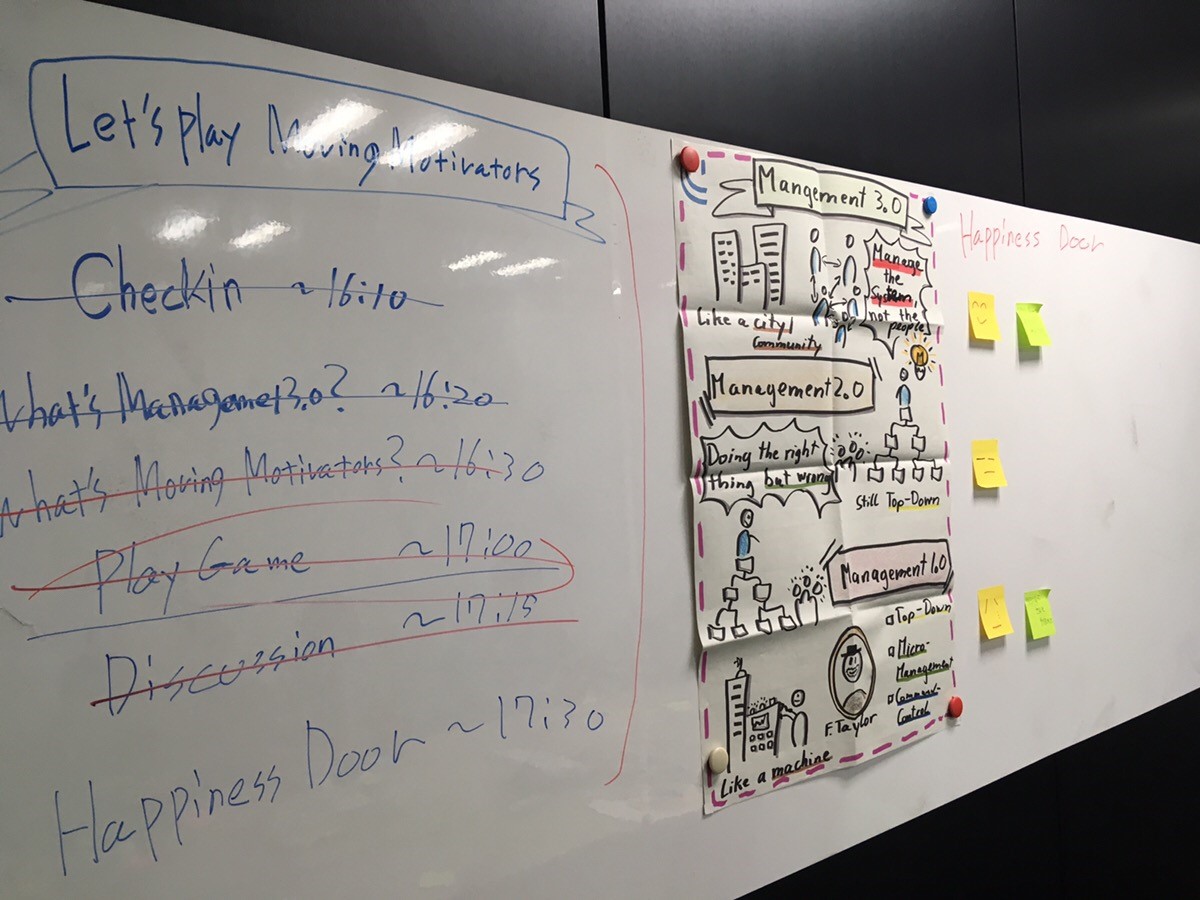 Let's play Moving Motivators
Checkin ~16:10
What's Managemet3.0? ~16:20
What's Moving Motivators? ~16:30
Play Game ~17:00
Discussion ~17:15
Happiness Door ~17:30
Mangement 3.0
Manage
the
System,
not the
people
Like a city/
community
Management2.0
Doing the right
thing but wrong
Still Top-Down
Management1.0
Top-Down
Micro-
Management
Control
F. Taylor
Like a machine
Happiness Door